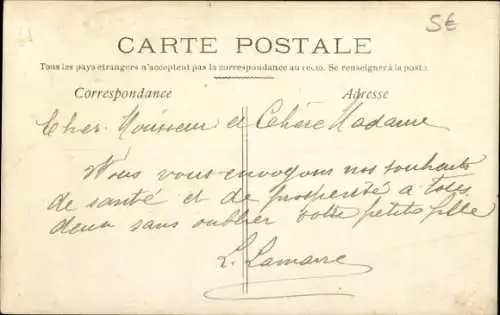 5€
CARTE POSTALE
Tous les pays étrangers n'acceptent pas la correspondance au recto. Se renseigner à la poste
Correspondance Adresse
Cher Monsieur et Chère Madame
Nous vous envoyons nos souhaits
de santé et de prosperité a tous
deux sans oublier votre petite fille
L. Lamarre